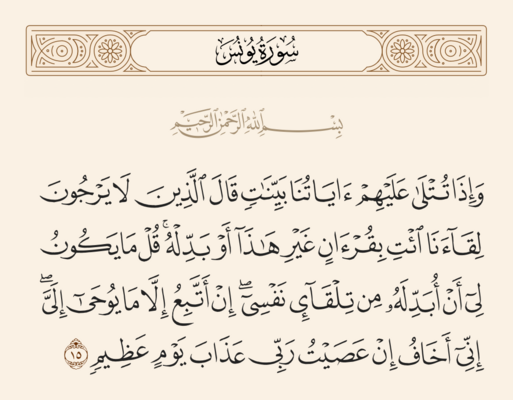 سُورَةُ يُونُسَ
بِسْمِ ٱللَّهِ ٱلرَّحْمَٰنِ ٱلرَّحِيمِ
وَإِذَا تُتْلَىٰ عَلَيْهِمْ ءَايَاتُنَا بَيِّنَٰتٍ قَالَ ٱلَّذِينَ لَا يَرْجُونَ
لِقَآءَنَا ٱئْتِ بِقُرْءَانٍ غَيْرِ هَٰذَآ أَوْ بَدِّلْهُ ۚ قُلْ مَا يَكُونُ
لِىٓ أَنْ أُبَدِّلَهُۥ مِن تِلْقَآئِ نَفْسِىٓ ۖ إِنْ أَتَّبِعُ إِلَّا مَا يُوحَىٰٓ إِلَىَّ ۖ
إِنِّىٓ أَخَافُ إِنْ عَصَيْتُ رَبِّى عَذَابَ يَوْمٍ عَظِيمٍ ١٥